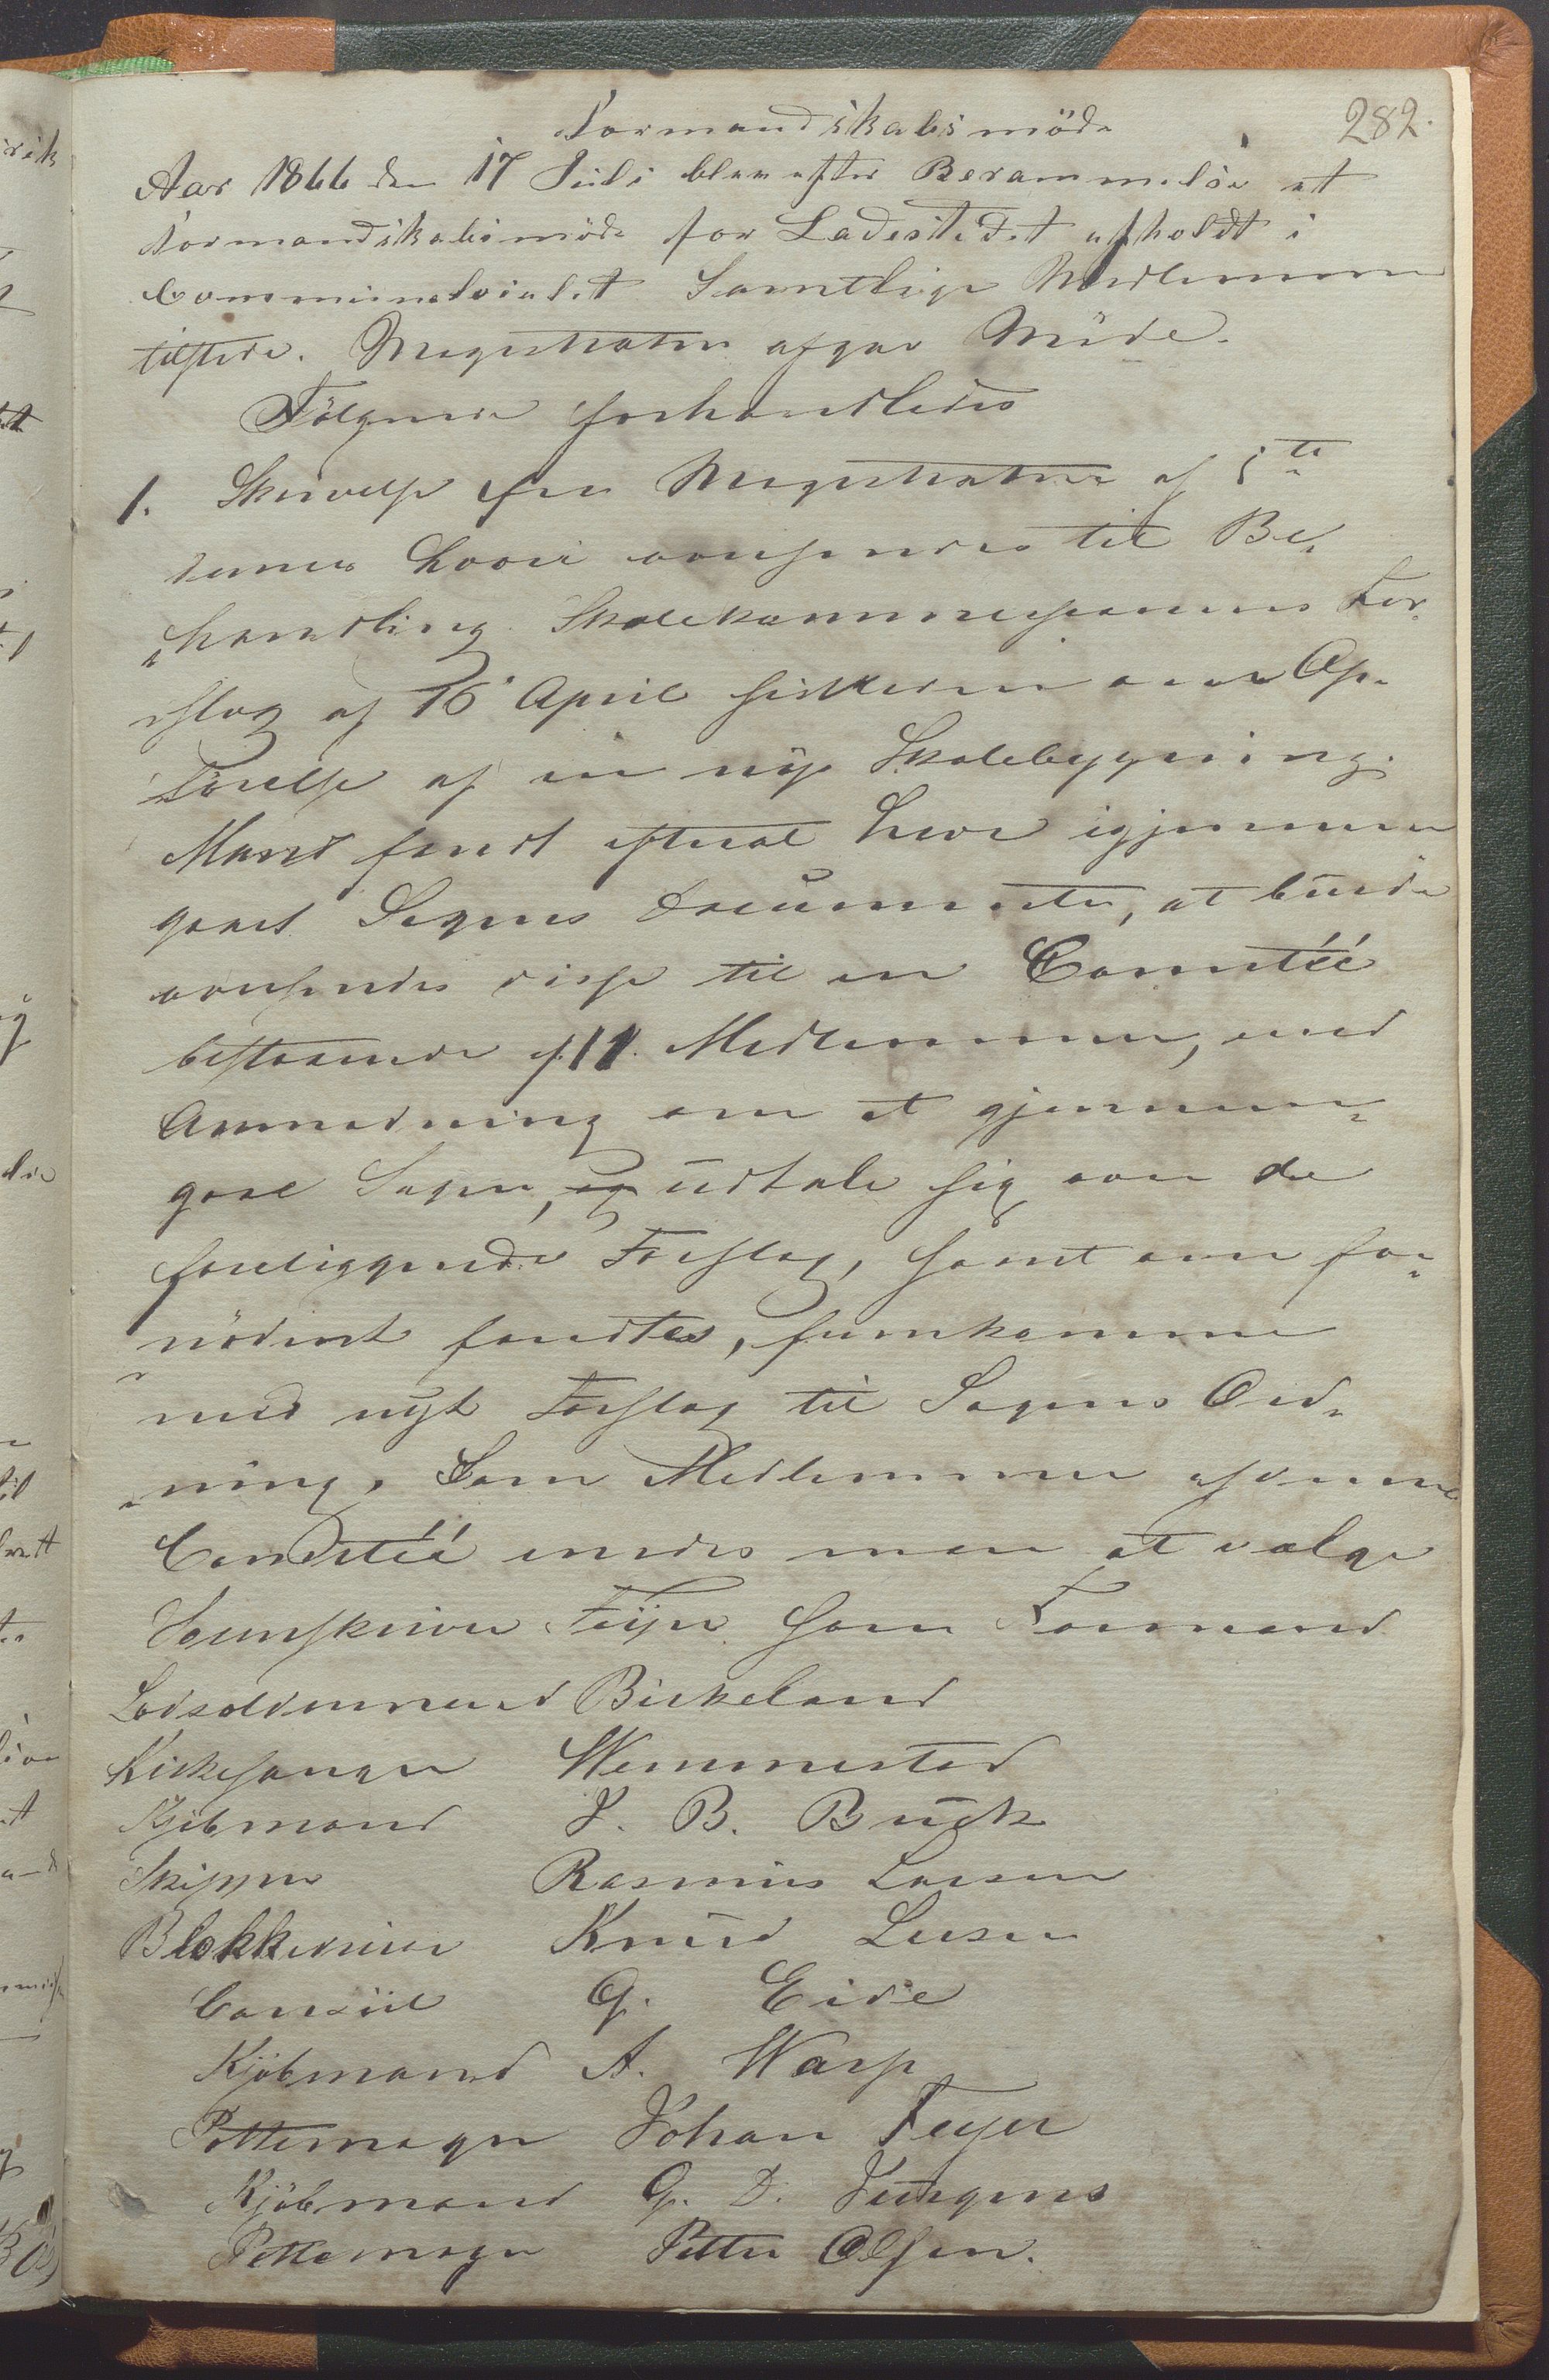 Formandskabsmöde
282.
Aar 1866 den 17 Juli blev efter Berammelse et
Formandskabsmöde for Ladestedet afholdt i
Communelocalet Samtlige Medlemmer
tilstede. Magistraten afgav Möde.
Fölgende forhandledes
1. Skrivelse fra Magistraten af 5te
dennes hvori oversendes til Be„
„handling Skolekommissionens For„
„slag af 16 April sidstleden om Op„
„förelse af en ny Skolebygning.
Mand fandt efterat have igjennem
gaaet Sagens Documenter, at burde
oversendes disse til en Comitéé
bestaaende af 11. Medlemmer, med
Anmodning om at gjennem„
gaae Sagen, og udtale sig om de
foreliggende Forslag, samt om for„
„nödent fandtes, fremkomme
med nyt Forslag til Sagens Ord„
„ning. Som Medlemmer af denne
Comitéé enedes man at vælge
Sorenskriver Feyer som Formand
Lodsoldermand Birkeland
Kirkesanger Wemmestad
Kjöbmand J. B. Buch
Skipper Rasmus Larsen
Blokkedreier Knud Larsen
Consül G. Eide
Kjöbmand A. Warp
Pottemager Johan Feyer
Kjöbmand G. D. Jürgens
Pottemager Petter Olsen.